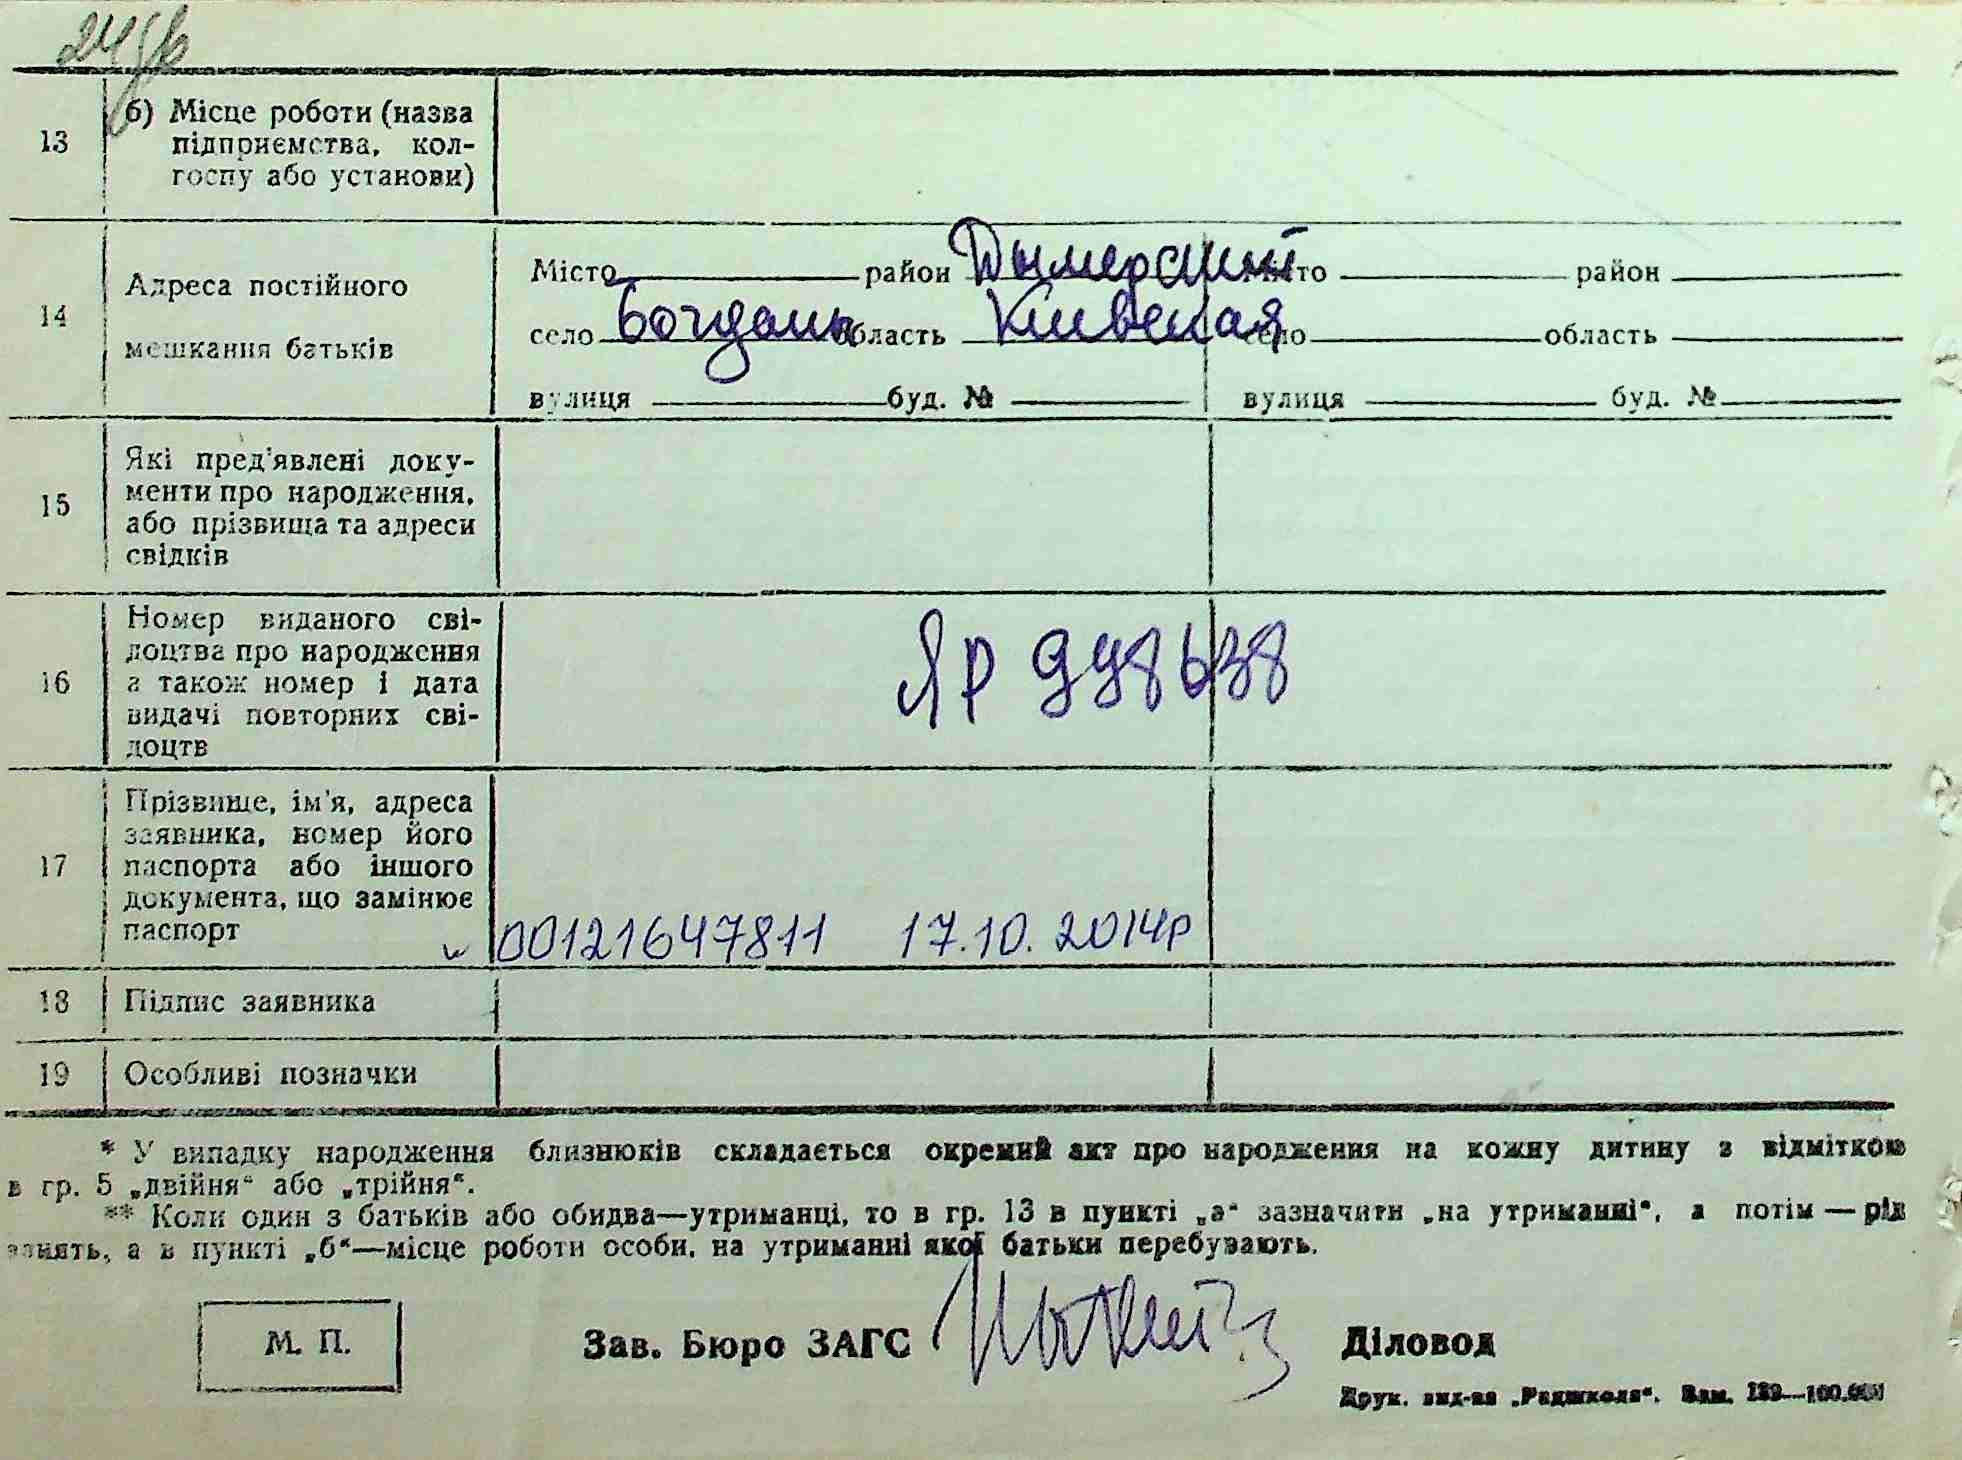 24
13 б) Місце роботи (назва
підприємства, кол-
госпу або установи)
14 Адреса постійного
мешкання батьків
Місто район Дымерский Місто район
село Богдани область Киевская село область
вулиця буд. № вулиця буд. №
15 Які пред'явлені доку-
менти про народження,
або прізвища та адреси
свідків
16 Номер виданого сві-
доцтва про народження
а також номер і дата
видачі повторних сві-
доцтв
ЯР 998638
17 Прізвище, ім'я, адреса
заявника, номер його
паспорта або іншого
документа, що замінює
паспорт
00121647811 17.10.2014р
18 Підпис заявника
19 Особливі позначки
* У випадку народження близнюків складається окремий акт про народження на кожну дитину з відміткою
в гр. 5 „двійня“ або „трійня“.
** Коли один з батьків або обидва—утриманці, то в гр. 13 в пункті „а“ зазначити „на утриманні“, а потім — рід
занять, а в пункті „б“—місце роботи особи, на утриманні якої батьки перебувають.
М. П. Зав. Бюро ЗАГС Діловод
Друк. вид-ва „Радшкола“. Зам. 139—100.000